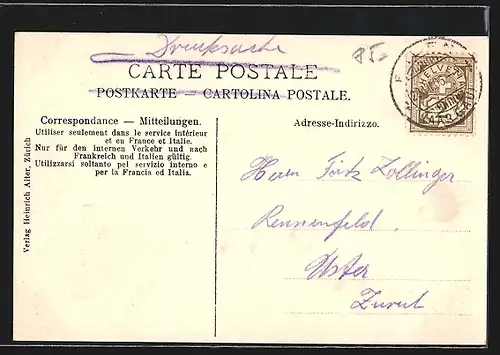 Drucksache
85.-
CARTE POSTALE
POSTKARTE — CARTOLINA POSTALE.
Correspondance — Mitteilungen.
Utiliser seulement dans le service intérieur
et en France et Italie.
Nur für den internen Verkehr und nach
Frankreich und Italien gültig.
Utilizzarsi soltanto pel servizio interno e
per la Francia ed Italia.
Adresse-Indirizzo.
Herrn Fritz Zollinger
Rennenfeld,
Uster
Zürich
Verlag Heinrich Alter, Zürich